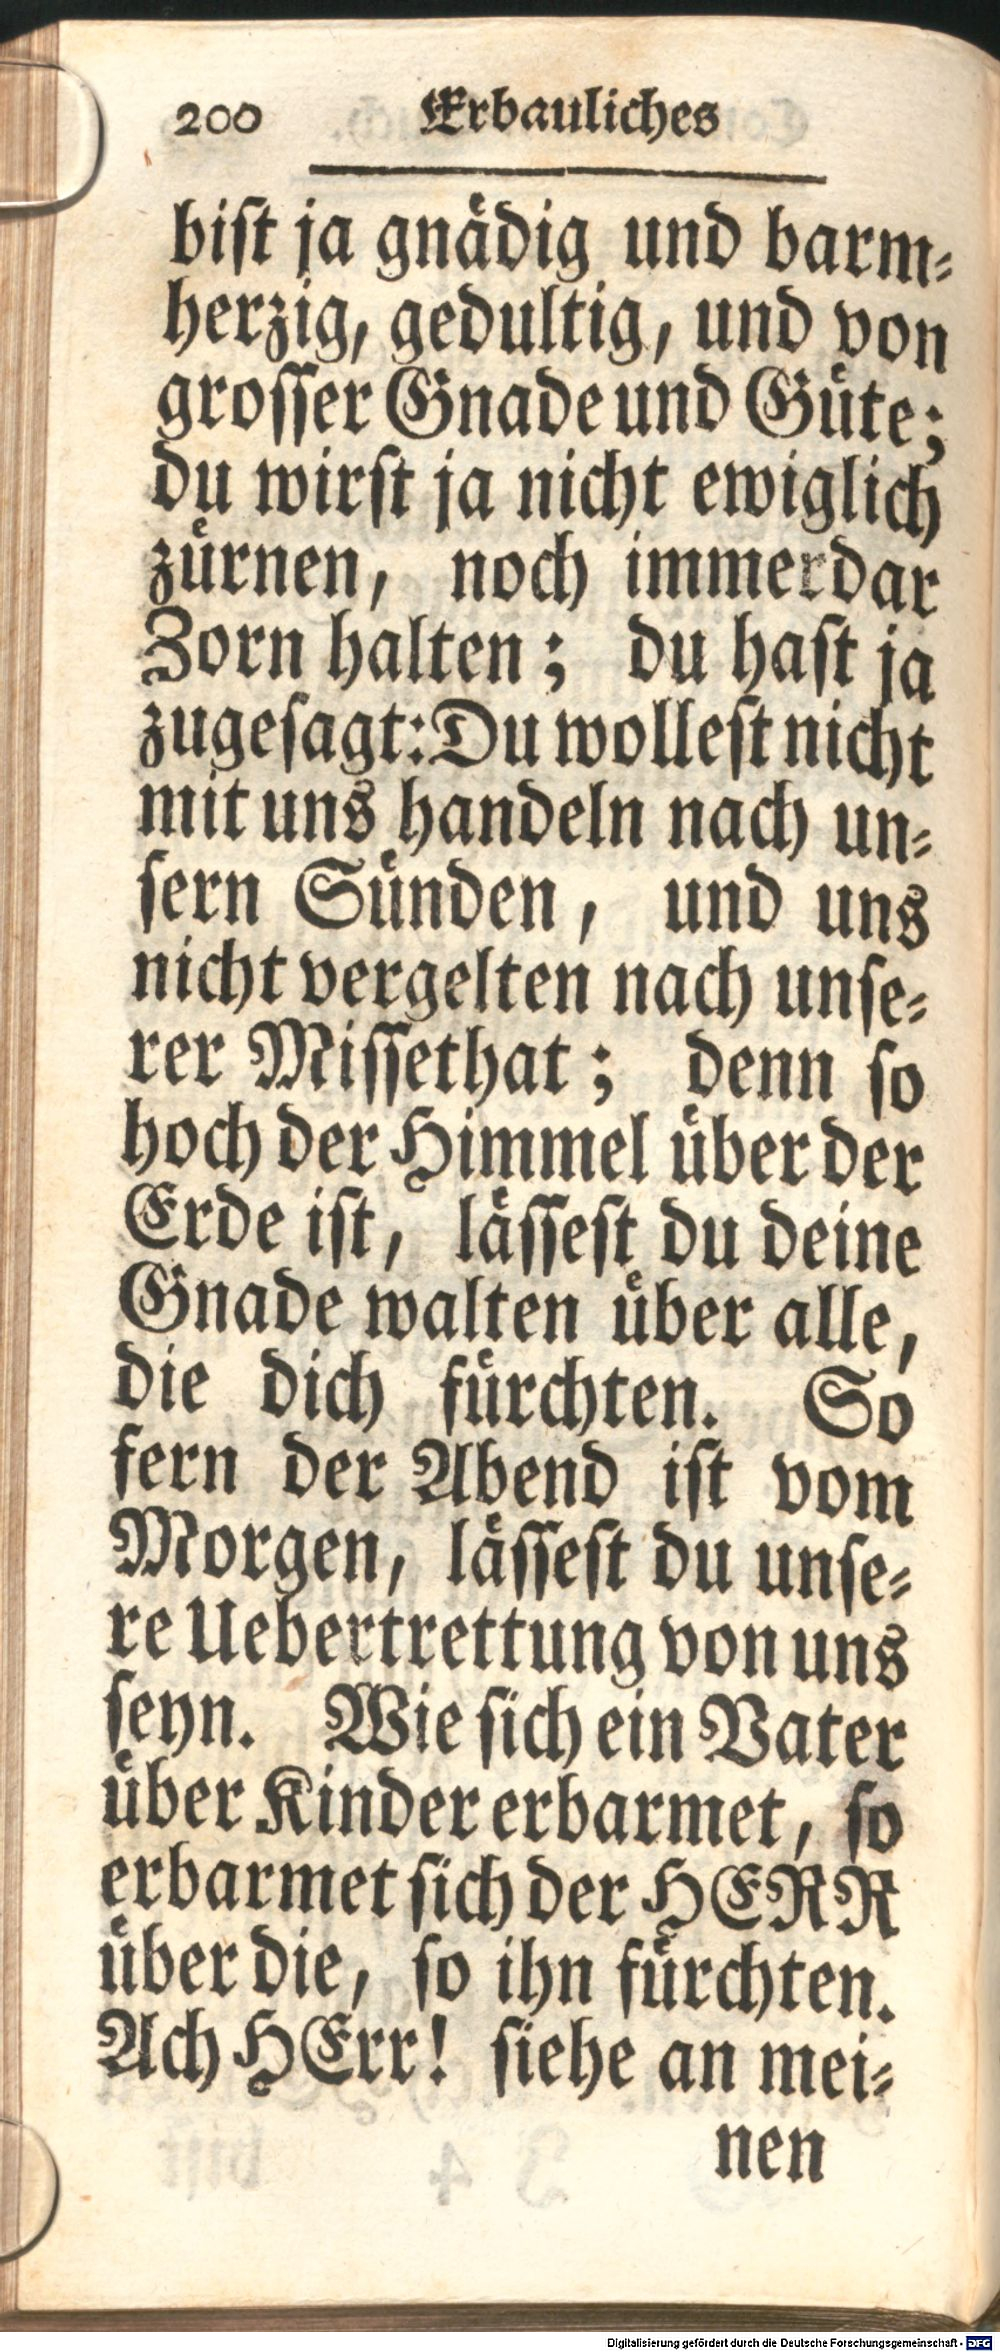 200 Erbauliches
biſt ja gnaͤdig und barm⸗
herzig, gedultig, und von
groſſer Gnade und Guͤte;
du wirſt ja nicht ewiglich
zuͤrnen, noch immerdar
Zorn halten; du haſt ja
zugeſagt: Du wolleſt nicht
mit uns handeln nach un⸗
ſern Suͤnden, und uns
nicht vergelten nach unſe⸗
rer Miſſethat; denn ſo
hoch der Himmel uͤber der
Erde iſt, laͤſſeſt du deine
Gnade walten uͤber alle,
die dich fuͤrchten. So
fern der Abend iſt vom
Morgen, laͤſſeſt du unſe⸗
re Uebertrettung von uns
ſeyn. Wie ſich ein Vater
uͤber Kinder erbarmet, ſo
erbarmet ſich der HERR
uͤber die, ſo ihn fuͤrchten.
Ach HErr! ſiehe an mei⸗
nen
Digitalisierung gefördert durch die Deutsche Forschungsgemeinschaft - DFG